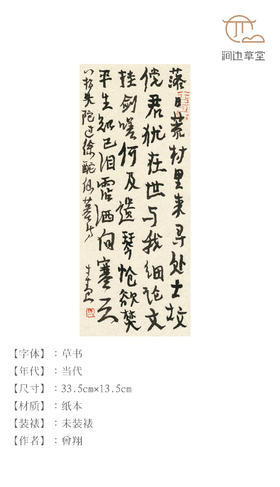 涧边草堂
落日荒村里来寻处士坟
傥君犹在世与我细论文
挂剑嗟何及遗琴怆欲焚
平生知己泪洒向寒云
八指头陀过徐酡仙墓
【字体】：草书
【年代】：当代
【尺寸】：33.5cm×13.5cm
【材质】：纸本
【装裱】：未装裱
【作者】：曾翔